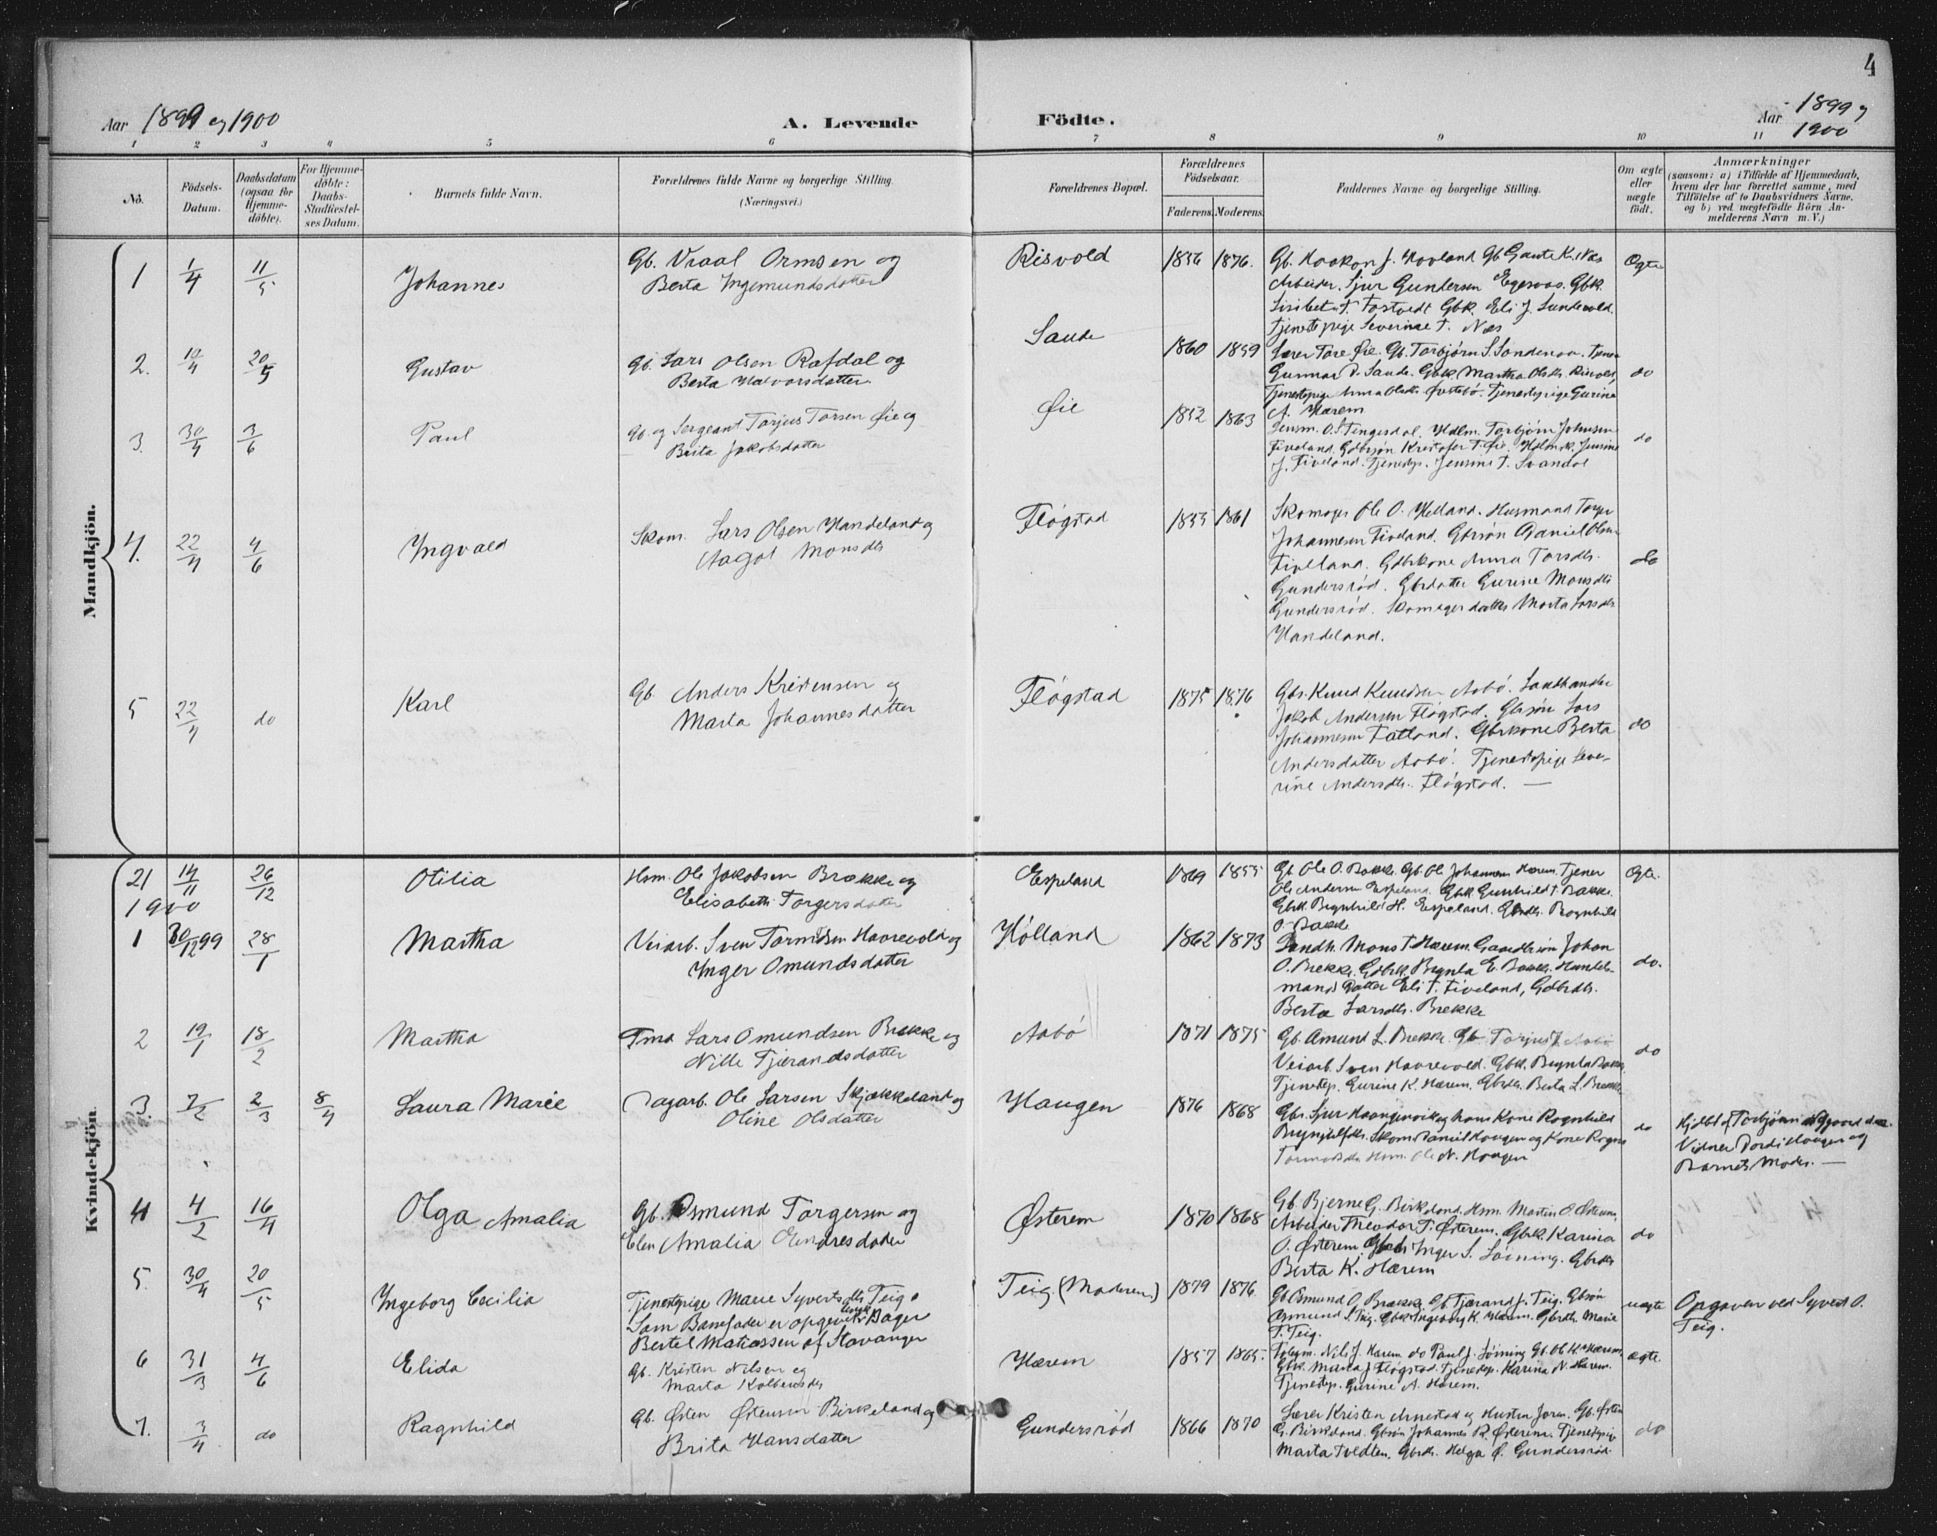 4
Aar 1899 og 1900
A. Levende
Födte.
Aar 1899 og 1900
1 2 3 4 5 6 7 8 9 10 11
No.
Födsels-Datum.
Daabsdatum (ogsaa for Hjemme-döbte).
For Hjemme-döbte: Daabs-Stadfæstelses Datum.
Barnets fulde Navn.
Forældrenes fulde Navne og borgerlige Stilling. (Næringsvei.)
Forældrenes Bopæl.
Forældrenes Födselsaar.
Faderens. Moderens.
Faddernes Navne og borgerlige Stilling.
Om ægte eller uægte födt.
Anmærkninger
(saasom: a) i Tilfælde af Hjemmedaab, hvem der har forrettet samme, med Tilföielse af to Daabsvidners Navne, og b) ved uægtefödte Börn Anmelderens Navn m. V.)
Mandkjön.
1 1/4 11/5 Johannes
Gb. Vraal Ormsen og
Berta Ingemundsdatter
Risvold 1856 1876.
Gb. Haakon J. Hovland Gb Gaute K. Næs
Arbeider. Sjur Gundersen Egesaas. Gbk.
Lisibet T. Tostvedt Gbk. Eli J. Sandvold.
Tjenestepige Severine T. Næs
Ægte
2. 19/4 20/5 Gustav
Gb. Lars Olsen Rafdal og
Berta Halvorsdatter
Saude 1860 1859
Lærer Tore Øie. Gb. Torbjørn S. Søndenaa. Tjener
Gunnar P. Saude. Gbk. Martha Olsdtr. Risvold,
Tjenestepige Anna Olsdtr. Østebø. Tjenestepige Gurine
A. Hærem
do
3. 30/4 3/6 Paul
Gb. og Sergeant Torjus Torsen Øie og
Berta Jakobsdatter
Øie 1852 1863
Lensm. O. S. Tengesdal. Hdlm. Torbjørn Johnsen
Fiveland. Gbrsøn Kristofer T. Øie. Hdlmk. Jensine
J. Fiveland. Tjenestep. Jensine T. Svandal
do
4. 22/4 4/6 Ingvald
Skom. Lars Olsen Handeland og
Aagot Monsdtr
Fløgstad 1855 1861
Skomager Ole O. Helland. Husmand Torger
Johannesen Fiveland. Gbrsøn Daniel Olsen
Fiveland. Gdbrkone Anna Torsdtr.
Gundersrød. Gbrdatter Gurine Monsdtr
Gundersrød. Skomagerdatter Marta Larsdtr
Handeland.
do
5 22/4 do Karl
Gb. Anders Kristensen og
Marta Johannesdatter
Fløgstad 1875 1876
Gbr. Knud Knudsen Aabø. Landhandler
Jakob Andersen Fløgstad. Gbrsøn Lars
Johannesen Tatland. Gbrkone Berta
Andersdatter Aabø. Tjenestepige Seve-
rine Andersdtr. Fløgstad. —
do
Kvindekjön.
21 14/11 26/12 Otilia
Hsm. Ole Jakobsen Brække og
Elisabeth Torgersdatter
Espeland 1869 1855
Gb Ole O. Bakke. Gb. Ole Johannesen Hærem. Tjener
Ole Andersen Espeland. Gbk Gunhild T. Bakke.
Gbrk. Brynhild H. Espeland. Gbrdtr. Ragnhild
O. Bakke
Ægte.
1900
1 30/12 99 28/1 Martha
Veiarb. Sven Tormodsen Haavevold og
Inger Omundsdatter
Hølland 1862 1873
Landh. Mons T. Hærem. Gaardbrsøn Johan
O. Brekke. Gdbrk. Brynla E. Bakke. Handels-
mands Datter Eli T. Fiveland, Gdbrdtr.
Berta Larsdtr. Brekke
do.
2 19/1 18/2 Martha
Tmd Lars Omundsen Brekke og
Nille Tjærandsdatter
Aabø 1871 1875
Gb. Amund L. Brekke. Gb. Torjus J. Aabø
Veiarb. Sven Haavevold. Gbk. Brynla Bakke
Tjenestep. Gurine K. Hærem. Gbrdtr. Berta L. Brekke
do
3. 7/2 2/3 8/4 Laura Marie
Dagarb. Ole Larsen Skjækkeland og
Oline Olsdatter
Haugen 1876 1868
Gbr. Sjur Haangenvik og hans Kone Ragnhild
Brynjulfsdtr. Skom. Daniel Haugen og Kone Ragna
Tormodsdtr Hsm. Ole N. Haugen
do
Hjdbt af Torbjørn Nygaard
Vidner Dordi Haugen og
Barnets Moder. —
4 4/2 16/4 Olga Amalia
Gb. Osmund Torgersen og
Elen Amalia Endresdatter
Østerem 1870 1868
Gb Bjerne G. Birkeland. Hsm. Martin O Østerem,
Arbeider Theodor T. Østerem. Gbrk. Karina
O. Østerem Gbrdtr Inger S. Løining. Gbrdtr
Berta K. Hærem
do
5. 30/4 20/5 Ingeborg Cecilia
Tjenestepige Marie Syvertsdtr Teig.
Som Barnefader er opgivet Ungk. Bager
Bertel Matiassen af Stavanger
Teig (Moderen) 1879 1876
Gb. Osmund O. Brække. Gb. Tjærand J. Teig. Gbsøn
Osmund S. Teig. Gbk. Ingeborg K. Hærem. Gbrdtr. Marie
T. Teig.
uægte
Opgaven ved Syvert O.
Teig.
6 31/3 4/6 Elida
Gb. Kristen Nilsen og
Marta Kolbensdtr
Hærem 1857 1865.
Nils J. Hærem do Paul J. Løining Gb. Ole K. Hærem,
Gbk. Marta J Fløgstad. Tjenestep. Karina N. Hærem.
Tjenestep. Gurine A. Hærem.
ægte.
7. 3/4 do Ragnhild
Gb. Østen Østensen Birkeland og
Brita Hansdatter
Gundersrød 1866 1870
Lærer Kristen Amestad og Hustru Joren. Gb. Østen
G. Birkeland. Gbrsøn Johannes R. Østerem. Tjenestepige
Marta Tveldten. Gbrdtr. Helga Ø. Gundersrød.
do